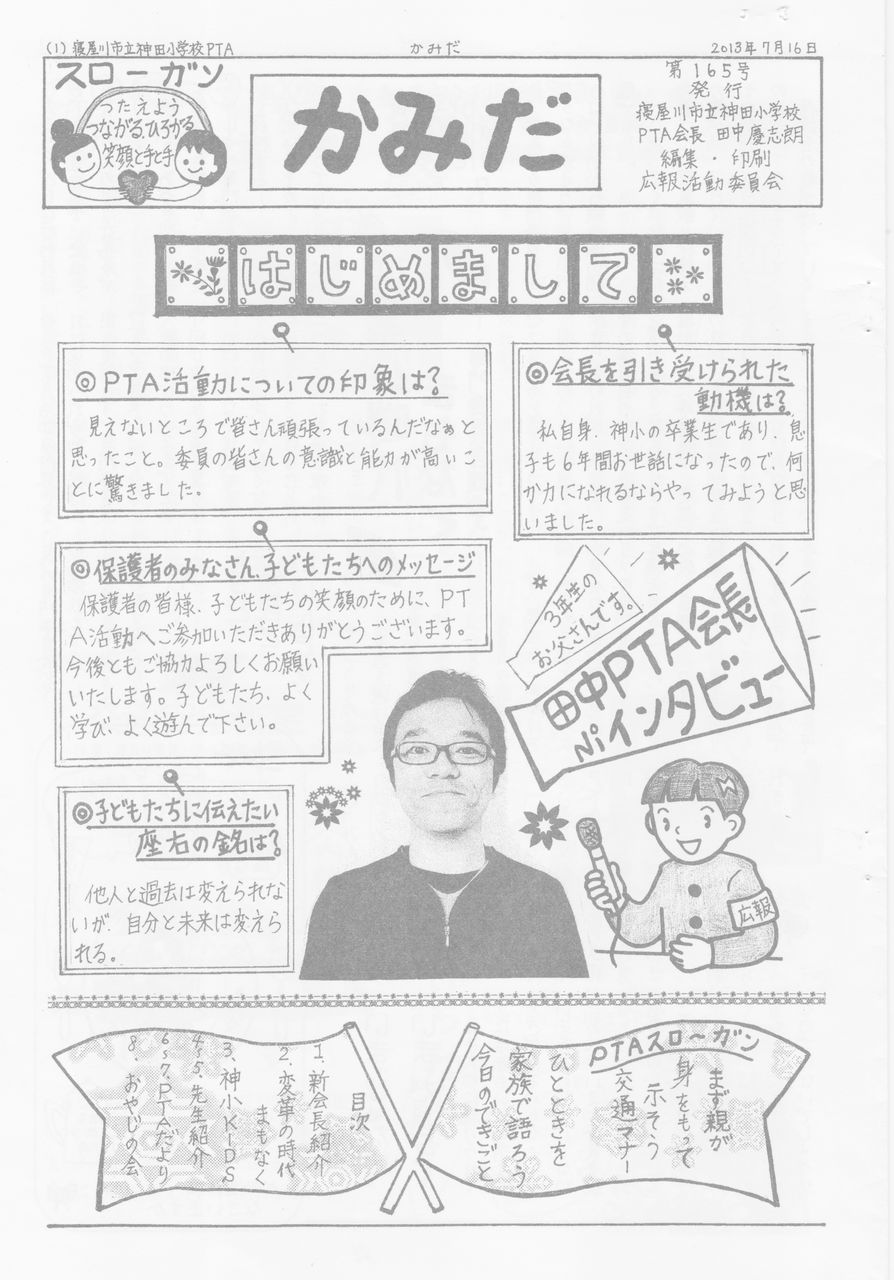 (1) 寝屋川市立神田小学校PTA
かみだ
2013年7月16日
スローガン
つたえよう
つながる、ひろがる
笑顔と手と手
かみだ
第165号
発行
寝屋川市立神田小学校
PTA会長 田中慶志朗
編集・印刷
広報活動委員会
はじめまして
◎PTA活動についての印象は?
見えないところで皆さん頑張っているんだなぁと
思ったこと。委員の皆さんの意識と能力が高いこ
とに驚きました。
◎会長を引き受けられた
動機は?
私自身、神小の卒業生であり、息
子も6年間お世話になったので、何
か力になれるならやってみようと思
いました。
◎保護者のみなさん、子どもたちへのメッセージ
保護者の皆様、子どもたちの笑顔のために、PT
A活動へご参加いただきありがとうございます。
今後ともご協力よろしくお願い
いたします。子どもたち、よく
学び、よく遊んで下さい。
3年生の
お父さんです。
田中PTA会長
Niインタビュー
◎子どもたちに伝えたい
座右の銘は?
他人と過去は変えられな
いが、自分と未来は変えら
れる。
広報
PTAスローガン
まず親が
身をもって
示そう
交通マナー
ひとときを
家族で語ろう
今日のできごと
目次
1、新会長紹介
2、変革の時代
まもなく
3、神小KIDS
4,5、先生紹介
6,7、PTAだより
8、おやじの会